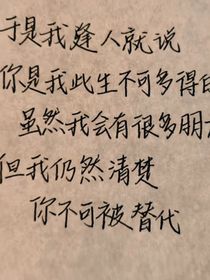 于是我逢人就说
你是我此生不可多得
虽然我会有很多朋
但我仍然清楚
你不可被替代